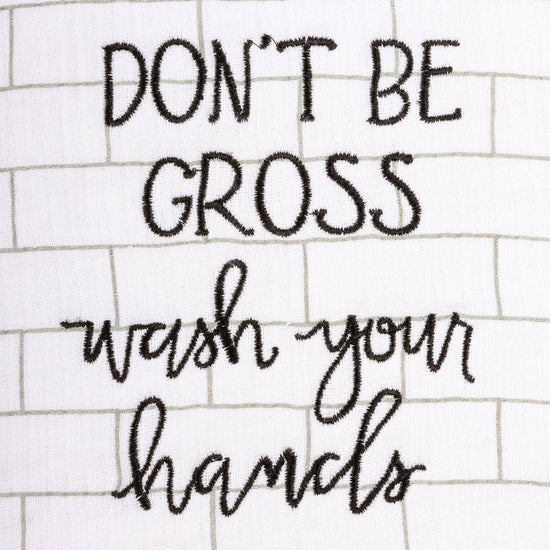 DON'T BE
GROSS
wash your
hands